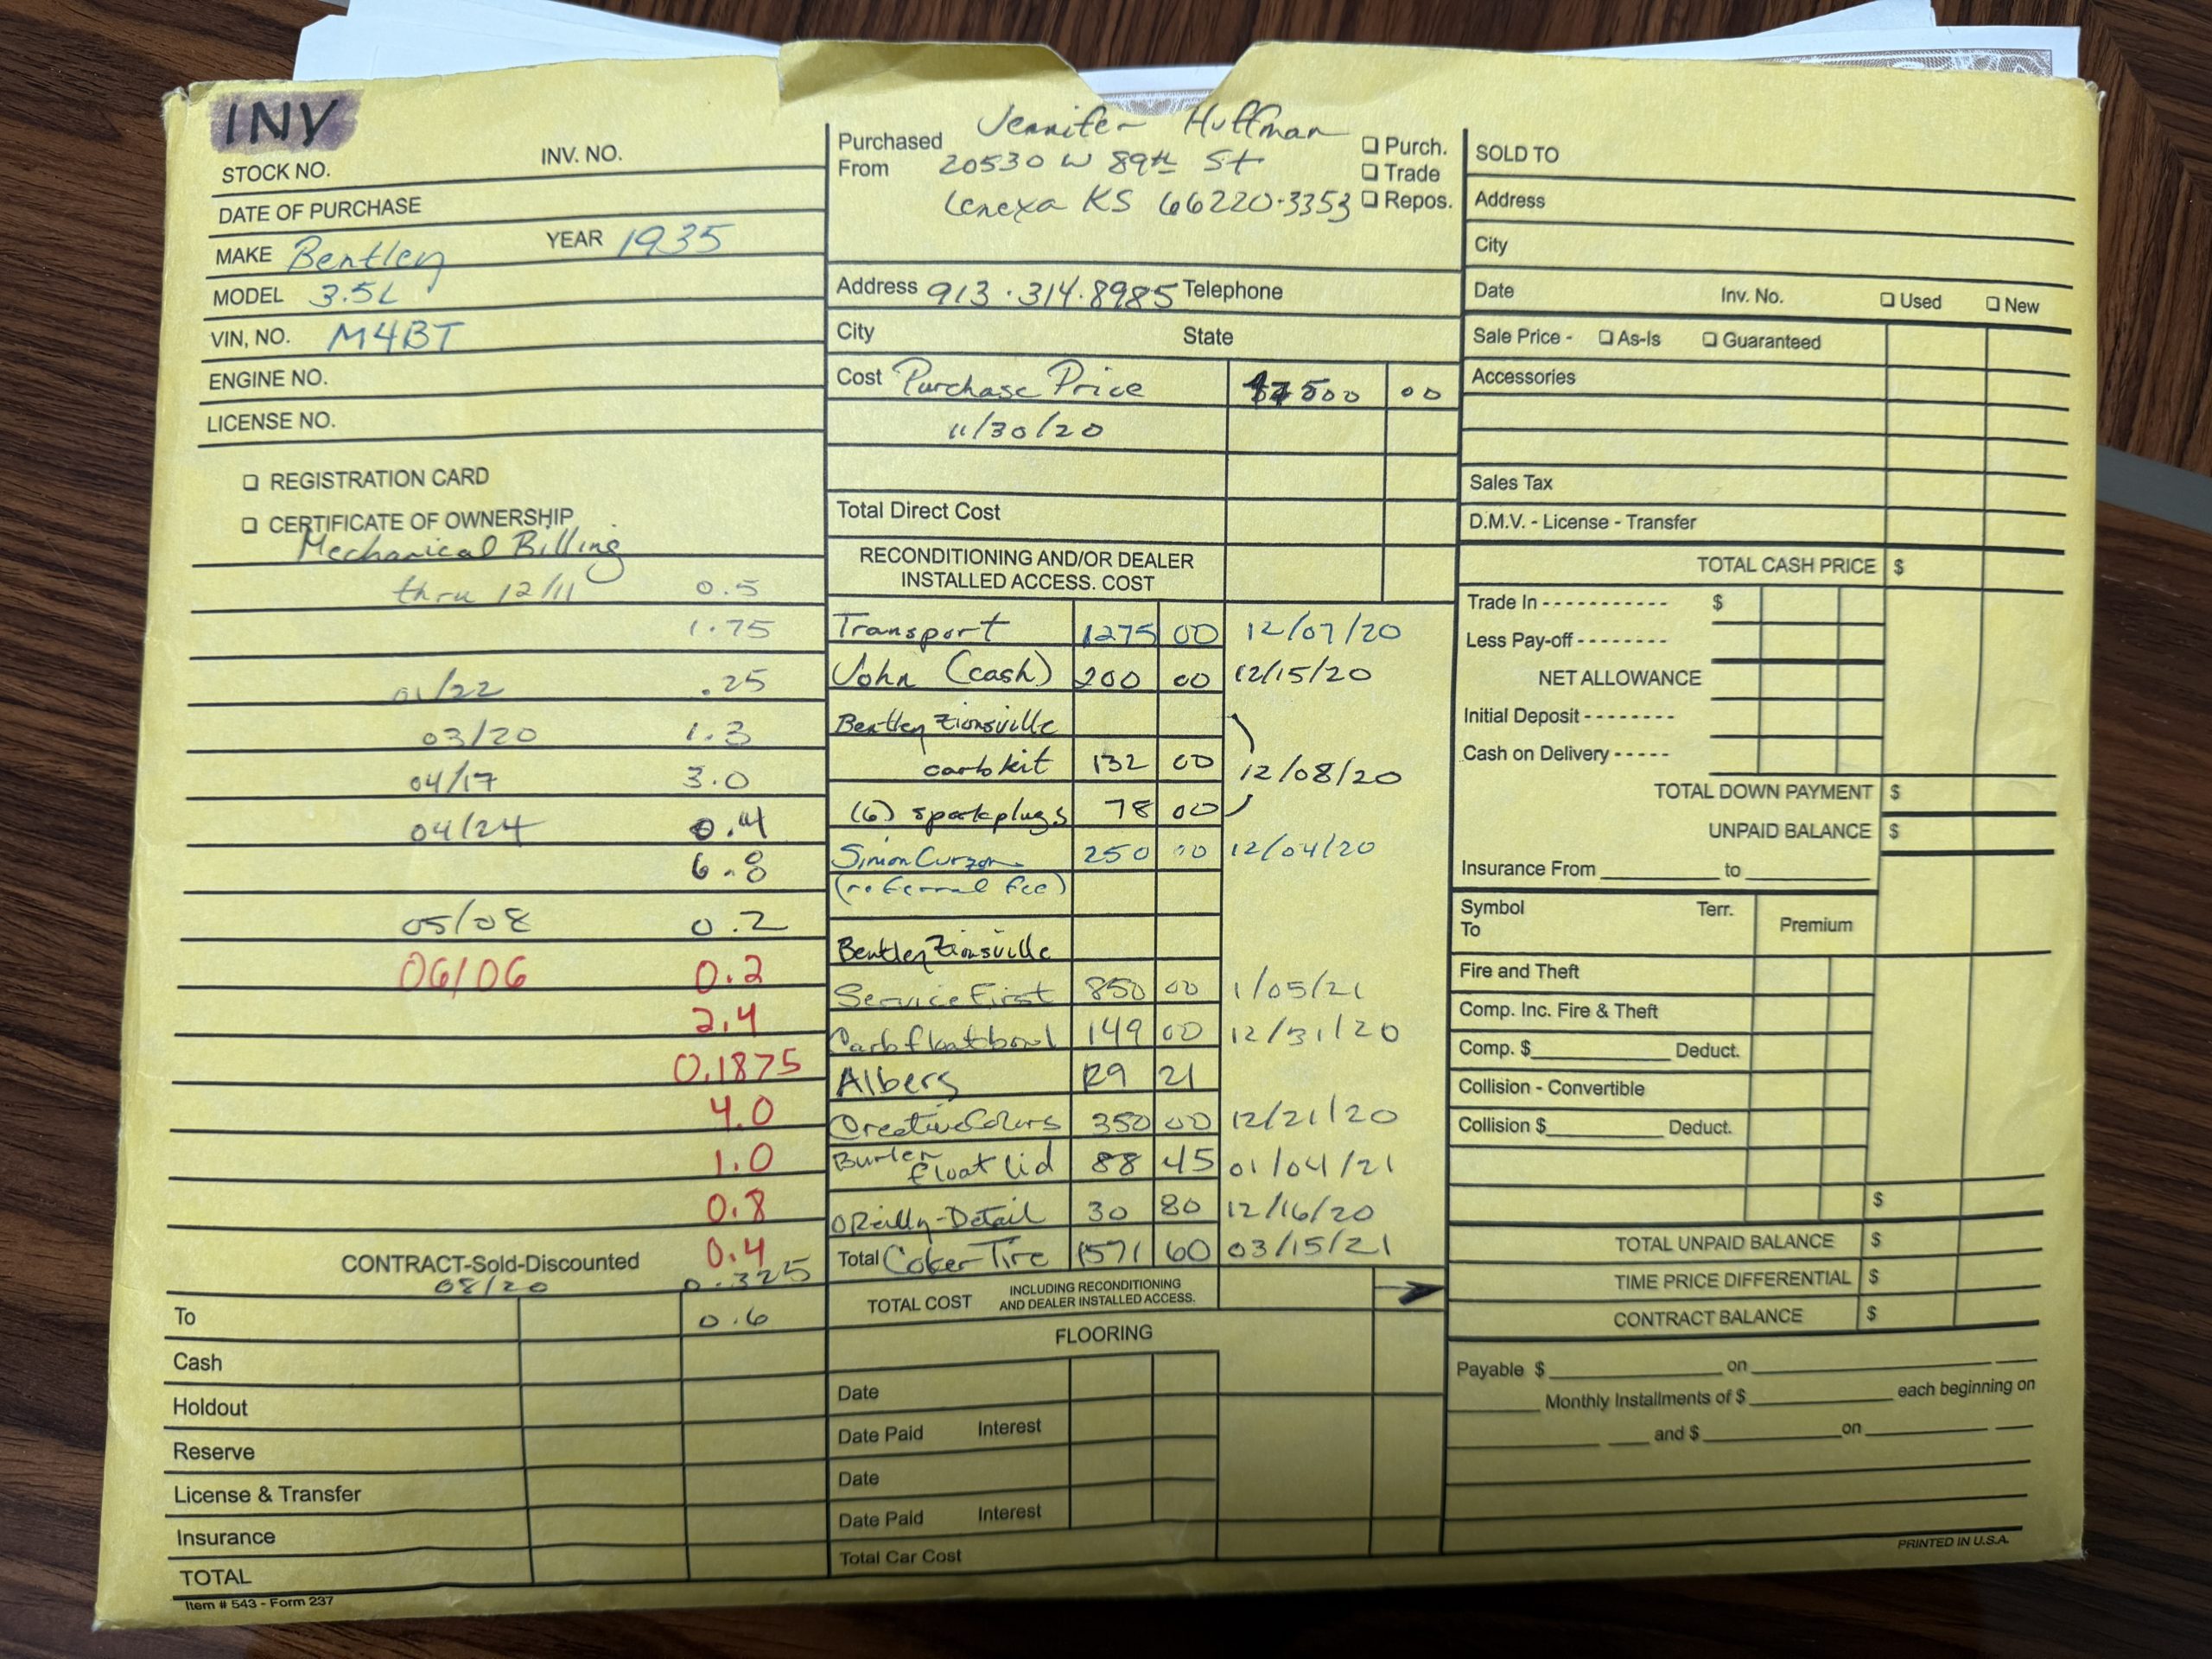 INV
STOCK NO. INV. NO.
DATE OF PURCHASE
MAKE Bentley YEAR 1935
MODEL 3.5L
VIN, NO. M4BT
ENGINE NO.
LICENSE NO.
REGISTRATION CARD
CERTIFICATE OF OWNERSHIP
Mechanical Billing
thru 12/11 0.5
1.75
01/22 .25
03/20 1.3
04/17 3.0
04/24 0.4
6.8
05/08 0.2
06/06 0.2
2.4
0.1875
4.0
1.0
0.8
0.4
CONTRACT-Sold-Discounted
08/20 0.325
To 0.6
Cash
Holdout
Reserve
License & Transfer
Insurance
TOTAL
Item # 543 - Form 237
Purchased From Jennifer Huffman
20530 W 89th St
Lenexa KS 66220-3353
Purch.
Trade
Repos.
Address 913.314.8985 Telephone
City State
Cost Purchase Price 500 00
11/30/20
Total Direct Cost
RECONDITIONING AND/OR DEALER
INSTALLED ACCESS. COST
Transport 1275 00 12/07/20
John (cash) 200 00 12/15/20
Bentley Zionsville
carb kit 132 00 12/08/20
(6) sparkplugs 78 00
Simon Curzon 250 00 12/04/20
(referral fee)
Bentley Zionsville
Service First 850 00 1/05/21
Carb float bowl 149 00 12/31/20
Albers 129 21
Creative Colors 350 00 12/21/20
float lid 88 45 01/04/21
OReilly-Detail 30 80 12/16/20
Total Coker Tire 1571 60 03/15/21
TOTAL COST INCLUDING RECONDITIONING
AND DEALER INSTALLED ACCESS.
FLOORING
Date
Date Paid Interest
Date
Date Paid Interest
Total Car Cost
SOLD TO
Address
City
Date Inv. No. Used New
Sale Price - As-Is Guaranteed
Accessories
Sales Tax
D.M.V. - License - Transfer
TOTAL CASH PRICE $
Trade In - - - - - - - - - - - $
Less Pay-off - - - - - - - -
NET ALLOWANCE
Initial Deposit - - - - - - - -
Cash on Delivery - - - - -
TOTAL DOWN PAYMENT $
UNPAID BALANCE $
Insurance From __________ to __________
Symbol Terr. Premium
To
Fire and Theft
Comp. Inc. Fire & Theft
Comp. $__________ Deduct.
Collision - Convertible
Collision $__________ Deduct.
$
TOTAL UNPAID BALANCE $
TIME PRICE DIFFERENTIAL $
CONTRACT BALANCE $
Payable $ __________ on __________
Monthly Installments of $ __________ each beginning on
and $ __________ on __________
PRINTED IN U.S.A.